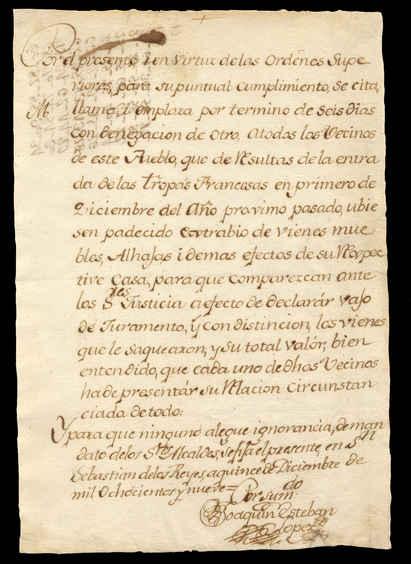 Por el presente i en virtud de las Ordenes Supe
riores, para su puntual Cumplimiento, se cita,
llama, i emplaza por termino de seis dias
con denegacion de otro, a todos los Vecinos
de este Pueblo, que de Resultas de la entra
da de las tropas Francesas en primero de
Diciembre del Año proximo pasado, ubie
sen padecido extrabio de vienes mue
bles, Alhajas i demas efectos de su Respec
tive Casa, para que comparezcan ante
los S.res Justicia a efecto de declarár vajo
de Juramento, y con distincion, los vienes
que le saquearon, y su total valór, bien
entendido, que cada uno de dhos Vecinos
ha de presentár su Relacion Circunstan
ciada de todo:
Y para que ninguno alegue ignorancia, de man
dato de los S.res Alcaldes, se fija el presente, en S.n
Sebastian de los Reyes, a quince de Diciembre de
mil Ochocientos y nueve=
Por su m.do
Joaquin Esteban
Lopez